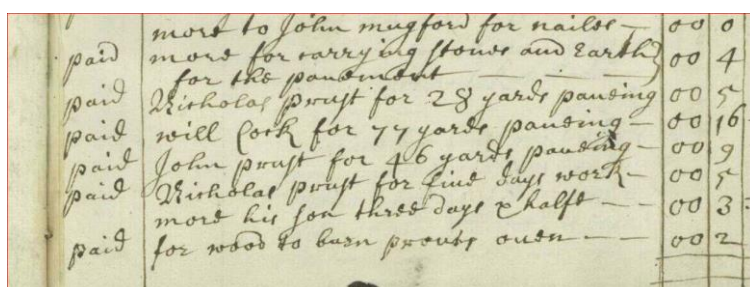 more to John mugford for nailes — 00 0
paid more for carrying stones and Earth 00 4
for the pavement — — —
paid Nicholas prust for 28 yards paveing 00 5
paid will Cock for 77 yards paveing — 00 16
paid John prust for 46 yards paveing — 00 9
paid Nicholas prust for five days work — 00 5
more his son three days & halfe — — 00 3
paid for wood to burn provts oven — — 00 2